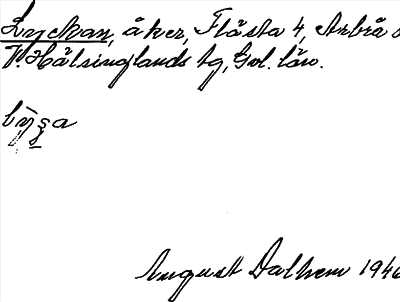 Lyckan, åker, Flästa 4, Arbrå s
V. Hälsinglands tg, Gvl. län.
August Dalhem 1940